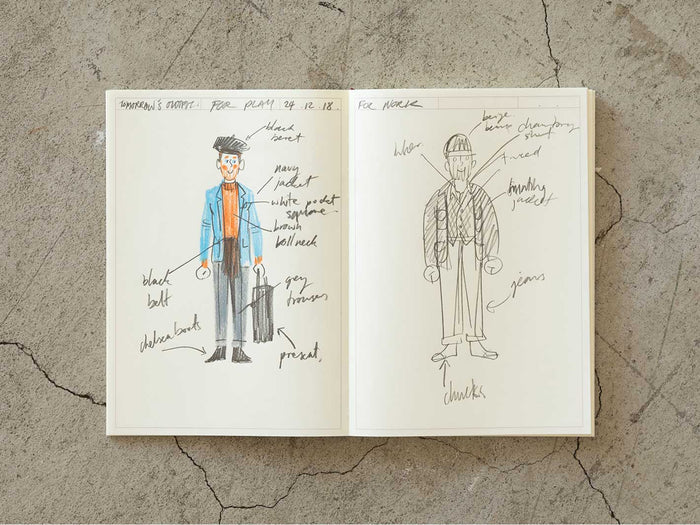 TOMORROW'S OUTFIT. FOR PLAY 24.12.18.
black
beret
navy
jacket
white pocket
square
brown
rollneck
black
belt
grey
trousers
chelsea boots
present.
FOR WORK
beige
chambray
shirt
tweed
hunting
jacket
jeans
chucks